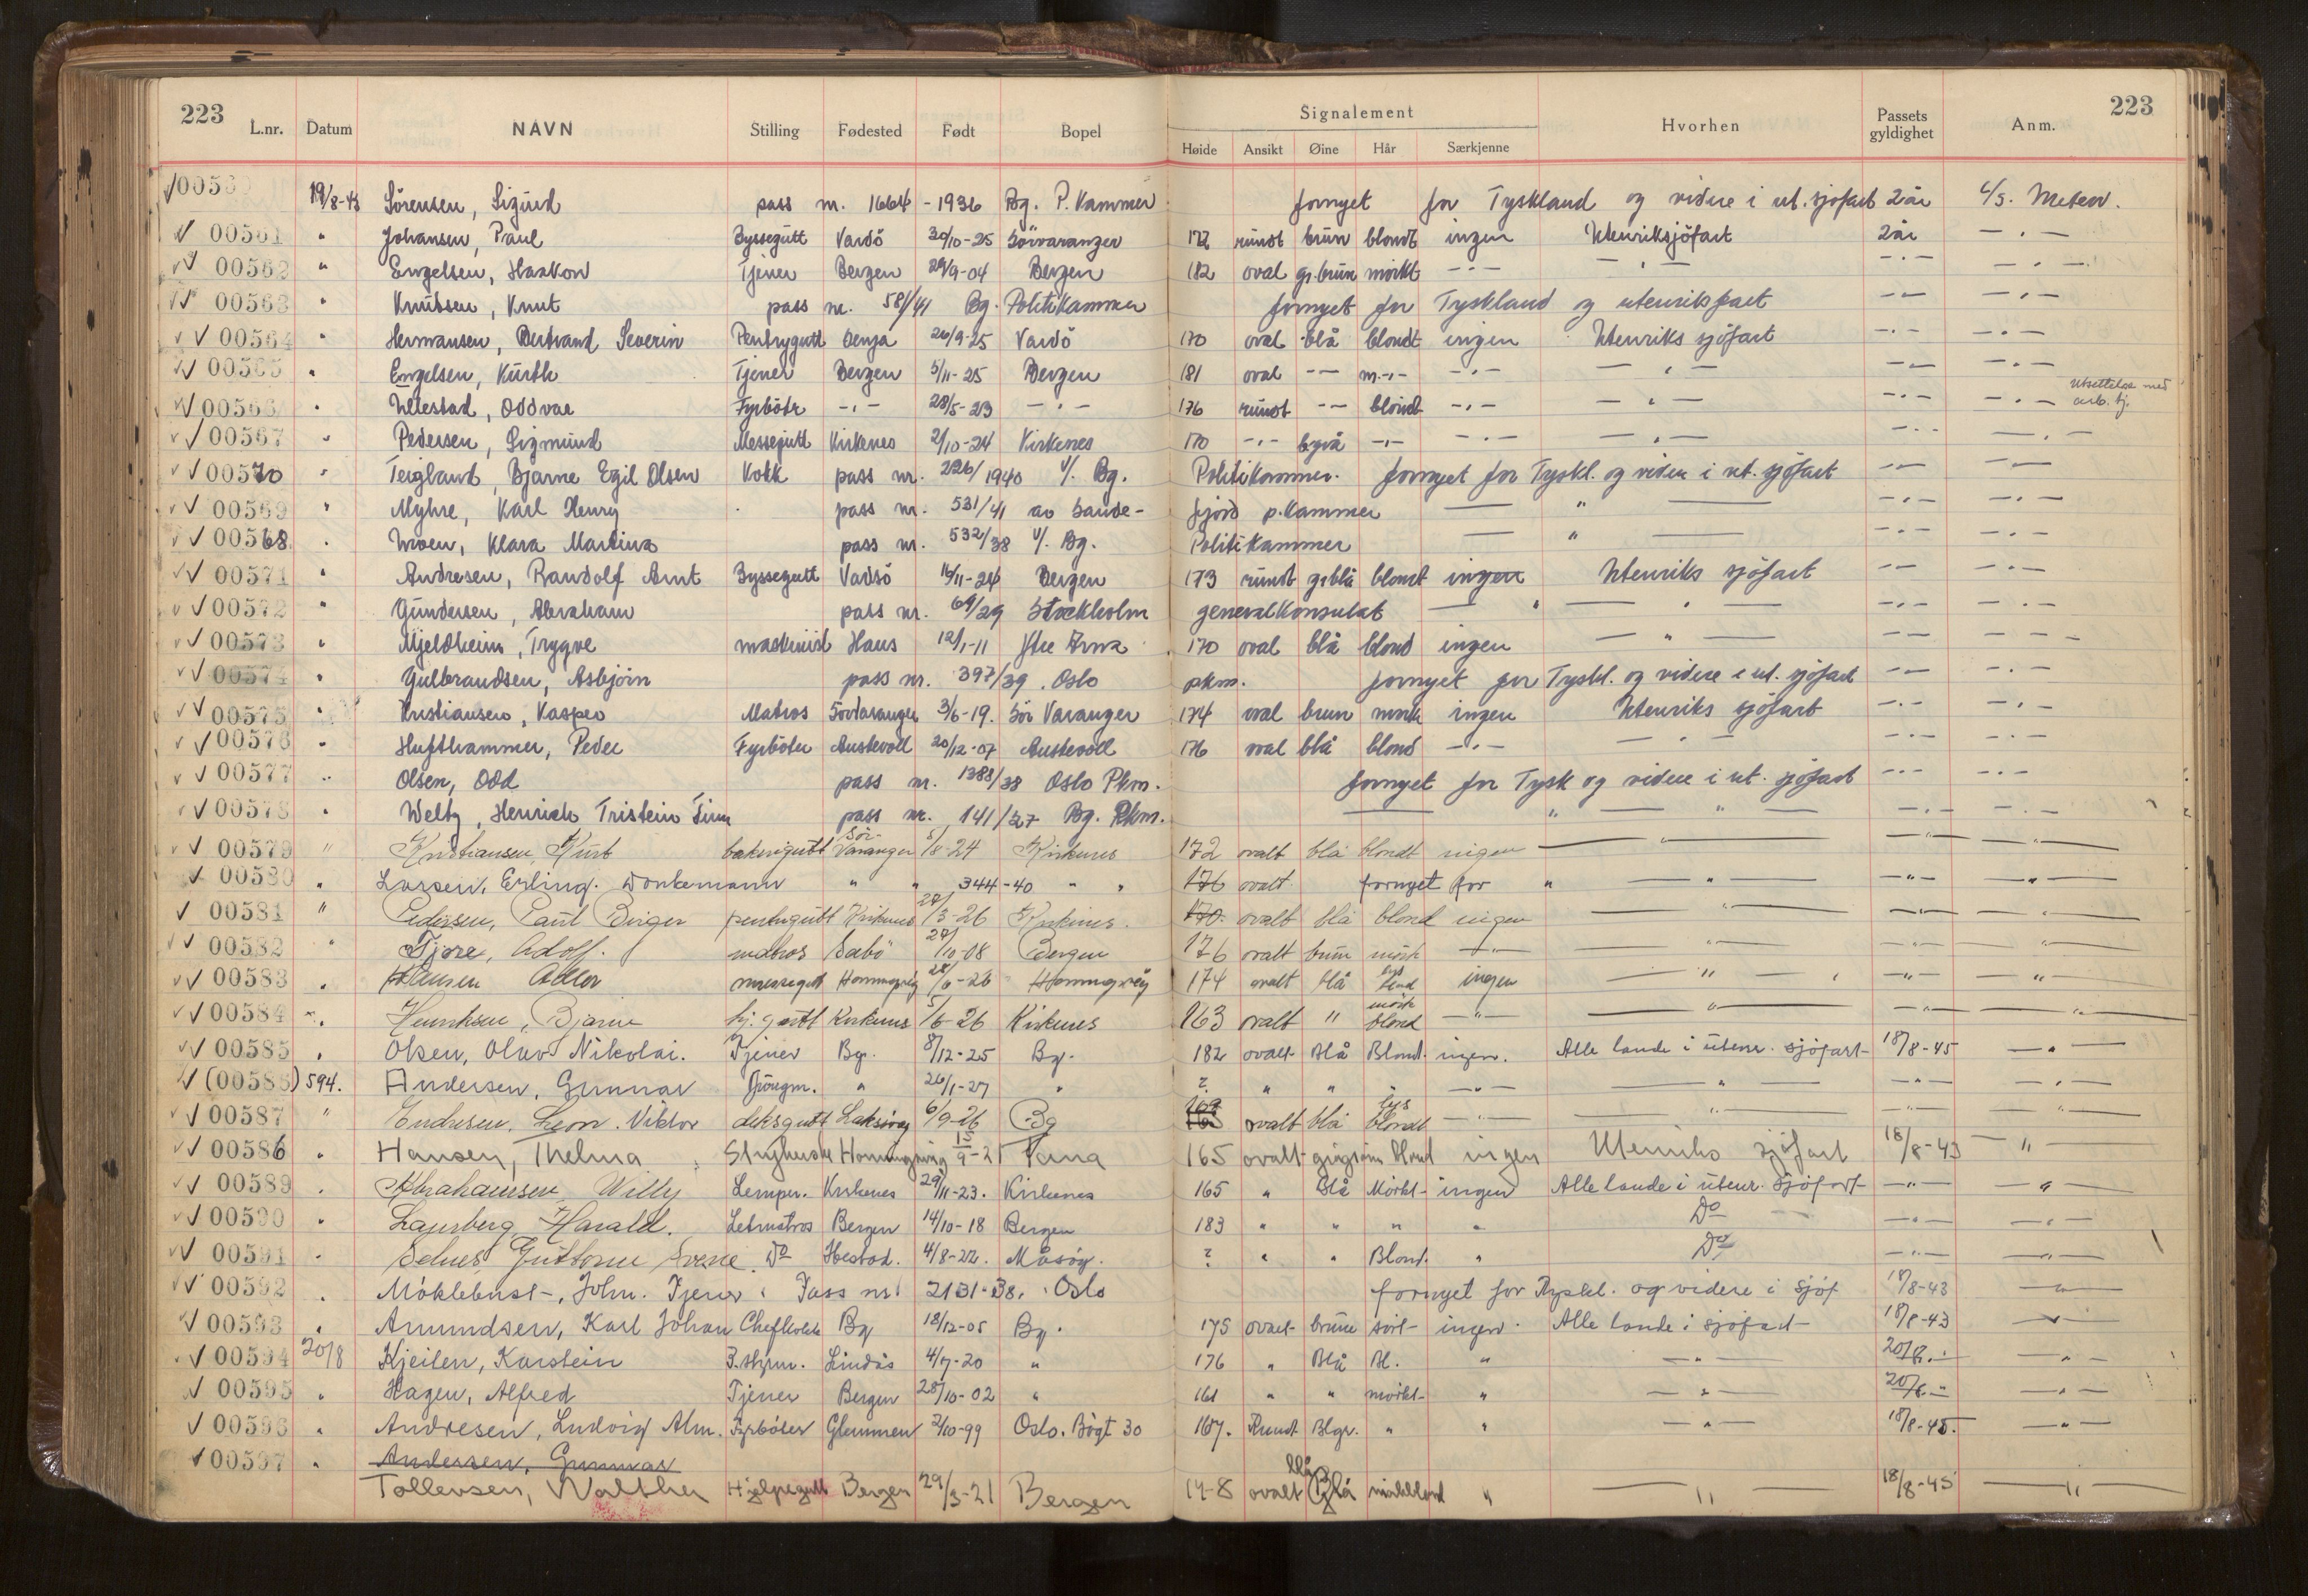 223 223
L.nr. Datum NAVN Stilling Fødested Født Bopel Signalement Hvorhen Passets gyldighet Anm.
Høide Ansikt Øine Hår Særkjenne
19/8-43 Sörensen, Sigurd pass nr. 1664 - 1936 Bg. P. Kammer fornyet for Tyskland og videre i ut. sjøfart 2 år
00561 " Johansen, Paul Byssegutt Vardö 30/10-25 Sörvaranger 172 rundt brun blondt ingen Utenriksjöfart 2 år — " —
00562 " Engelsen, Haakon Tjener Bergen 29/9-04 Bergen 182 oval gr.brun mörkt — " — — " — — " — — " —
00563 " Knutsen, Knut pass nr. 581/41 Bg. Politikammer fornyet for Tyskland og utenriksfart — " — — " —
00564 " Hermansen, Bertrand Severin Pentrygutt Senja 26/9-25 Vardö 170 oval blå blondt ingen Utenriks sjöfart — " — — " —
00565 " Engelsen, Kurth Tjener Bergen 5/11-25 Bergen 181 oval — " — m. — " — — " — — " — — " — — " —
00566 " Ulvestad, Oddvar Fyrböter — " — 28/5-23 — " — 176 rundt — " — blondt — " — — " — — " — — " — Utsettelse med arb. tj.
00567 " Pedersen, Sigmund Messegutt Kirkenes 2/10-24 Kirkenes 170 — " — bgrå — " — — " — — " — — " — — " —
00570 " Teigland, Bjarne Egil Olsen Kokk pass nr. 226/1940 v/. Bg. Politikammer. fornyet for Tyskl. og videre i ut. sjöfart — " — — " —
00569 " Myhre, Karl Henry pass nr. 531/41 av Sande- fjord p.kammer — " — — " — — " —
00568 " Klara Martina pass nr. 532/38 v/. Bg. Politikammer — " — — " — — " —
00571 " Andresen, Randolf Arnt Byssegutt Vadsö 16/11-24 Bergen 173 rundt grblå blondt ingen Utenriks sjöfart — " — — " —
00572 " Gundersen, Abraham pass nr. 69/29 Stockholm generalkonsulat — " — — " — — " — — " —
00573 " Mjeldheim, Trygve maskinist Haus 12/1-11 Ytre Arna 170 oval blå blond ingen — " — — " — — " —
00574 " Gulbrandsen, Asbjörn pass nr. 397/39. Oslo pkm. fornyet for Tyskl. og videre i ut. sjöfart — " — — " —
00575 " Kristiansen, Kasper Matros Sörvaranger 3/6-19. Sör Varanger 174 oval brun mörk ingen Utenriks sjöfart — " — — " —
00576 " Hufthammer, Peder Fyrböter Austevoll 20/12-07 Austevoll 176 oval blå blond — " — — " — — " — — " —
00577 " Olsen, Odd pass nr. 1388/38 Oslo Pkm. fornyet for Tysk og videre i ut. sjöfart — " — — " —
00578 " Welty, Henrich Tristein Finn pass nr. 141/27 Bg. Pkm. — " — — " — — " — — " —
00579 " Kristiansen, Kurt bakerigutt Sör-Varanger 5/8-24 Kirkenes 172 ovalt blå blondt ingen — " — — " — — " —
00580 " Larsen, Erling. Donkemann " " 344-40 " " 176 ovalt fornyet for " — " — — " — — " —
00581 " Pedersen, Paul Birger pentrygutt Kirkenes 28/3-26 Kirkenes. 170. ovalt blå blond ingen — " — — " — — " —
00582 " Fjære, Adolf. matros Sæbö 27/10-08 Bergen 176 ovalt brun mörk — " — — " — — " — — " —
00583 " Hansen messegutt Honningsvåg 28/6-26 Honningsvåg 174 ovalt blå lys blond ingen — " — — " — — " —
00584 " Henriksen, Bjarne hj. gutt Kirkenes 5/6-26 Kirkenes 163 ovalt " mörk blond — " — — " — — " — — " —
00585 " Olsen, Olav Nikolai. Tjener Bg. 8/12-25 Bg. 182 ovalt Blå Blond. ingen. Alle lande i utenr. sjöfart 18/8-45 — " —
(00586) 594. Andersen, Gunnar Jungm. " 26/1-27 " ? " " " — " — — " — — " — — " —
00587 " Endresen, Leon. Viktor deksgutt Laksevåg 6/9-26 Bg 169 ovalt blå lys blondt — " — — " — — " — — " —
00586 " Hansen, Thelma Honningsvåg 15/9-21 165 ovalt blond ingen Utenriks sjöfart 18/8-43 — " —
00589 " Abrahamsen, Willy Lemper. Kirkenes 29/11-23. Kirkenes 165 " Blå Mörkt ingen Alle lande i utenr. sjöfart — " — — " —
00590 " Harald. Letmatros Bergen 14/10-18 Bergen 183 " " " " Do — " — — " —
00591 " Selnes Guttorm Sverre. Do 4/8-22. Måsöy. ? " " Blond. " Do — " — — " —
00592 " Möklebust, John. Tjener. Pass nr. 2131-38. Oslo fornyet for Tyskl. og videre i sjöf 18/8-43 — " —
00593 " Amundsen, Karl Johan Chefkokk Bg 18/12-05 Bg. 175 ovalt brune sort ingen Alle lande i sjöfart 18/8-43 — " —
00594 20/8 Kjeilen, Karstein 3. styrm. Lindås 4/7-20 " 176 " Blå Bl. " — " — 20/8. " — " —
00595 " Hagen, Alfred Tjener Bergen 28/10-02 " 161 " " mörkt " — " — 20/8. " — " —
00596 " Andresen, Ludvig Alm. Fyrböter Glemmen 2/10-99 Oslo. Bögt 30 167. Rundt Blgr. " " — " — 18/8-45. — " —
00597 " Andersen, Gunnar
Tollevsen, Walther Hjelpegutt Bergen 29/3-21 Bergen ovalt Blå mörkblond " — " — 18/8-45 — " —